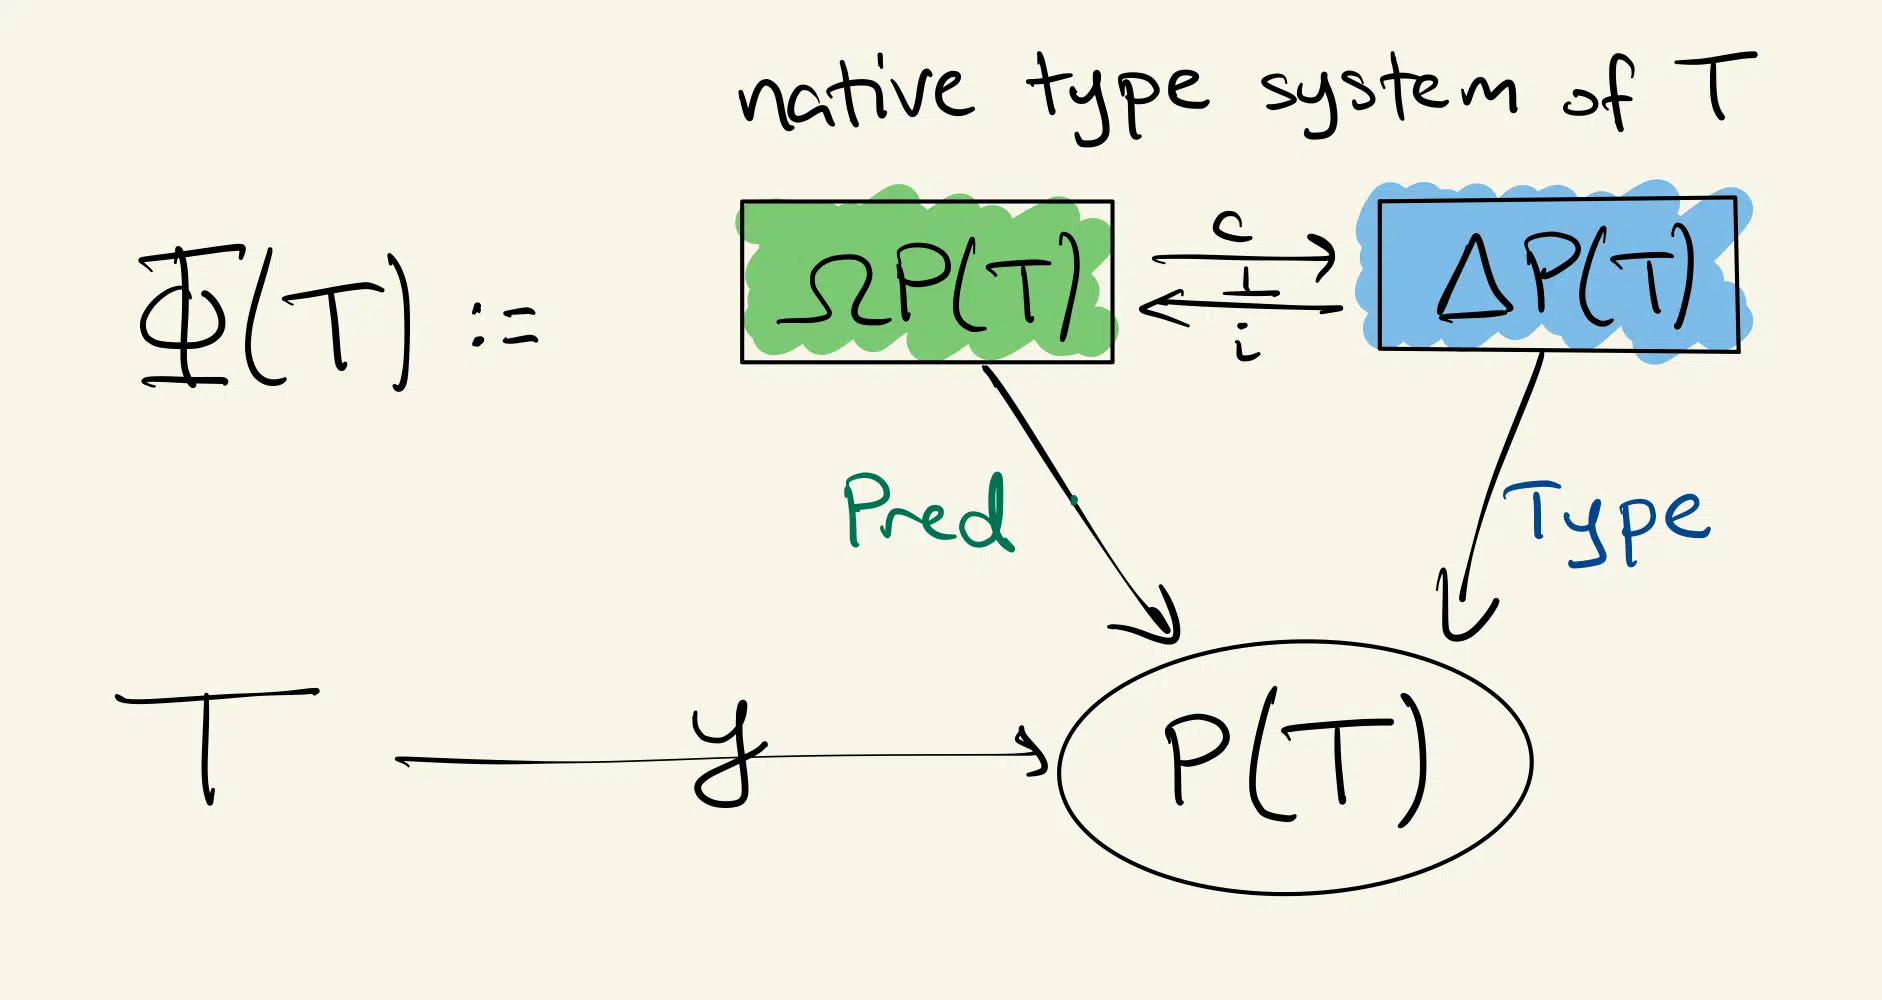 native type system of T
Φ(T) := ΩP(T) c ⊥ i ΔP(T)
Pred Type
T y P(T)